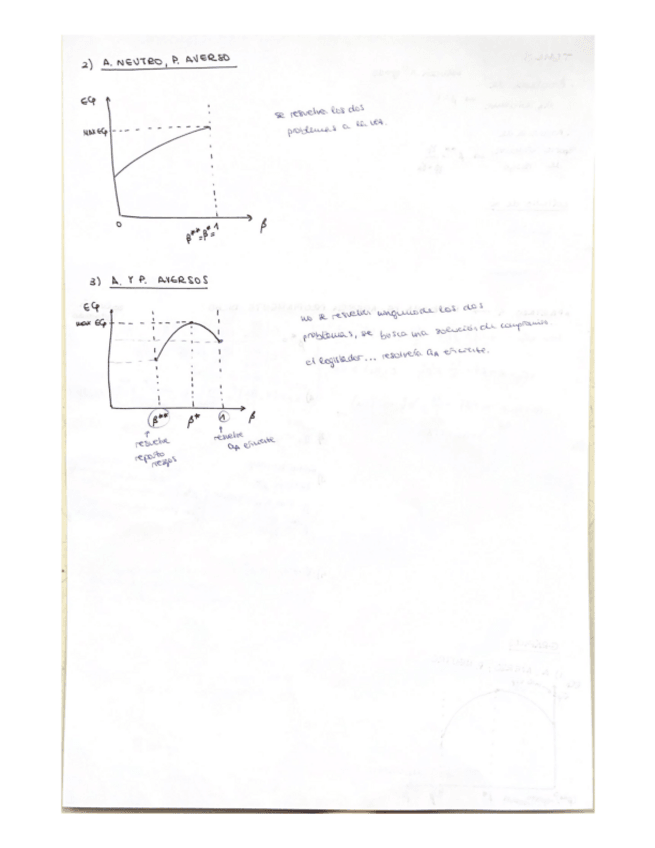 2) A. NEUTRO, P. AVERSO
EC
MAX EC
0
β** = β* = 1
β
se resuelve los dos
problemas a la vez.
3) A. Y P. AVERSOS
EC
MAX EC
β**
β*
1
β
↑
resuelve
reparto
riesgos
↑
resuelve
eficiente
no se resuelve ninguno de los dos
problemas, se busca una solución de compromiso
el legislador... resolvería eficiente.